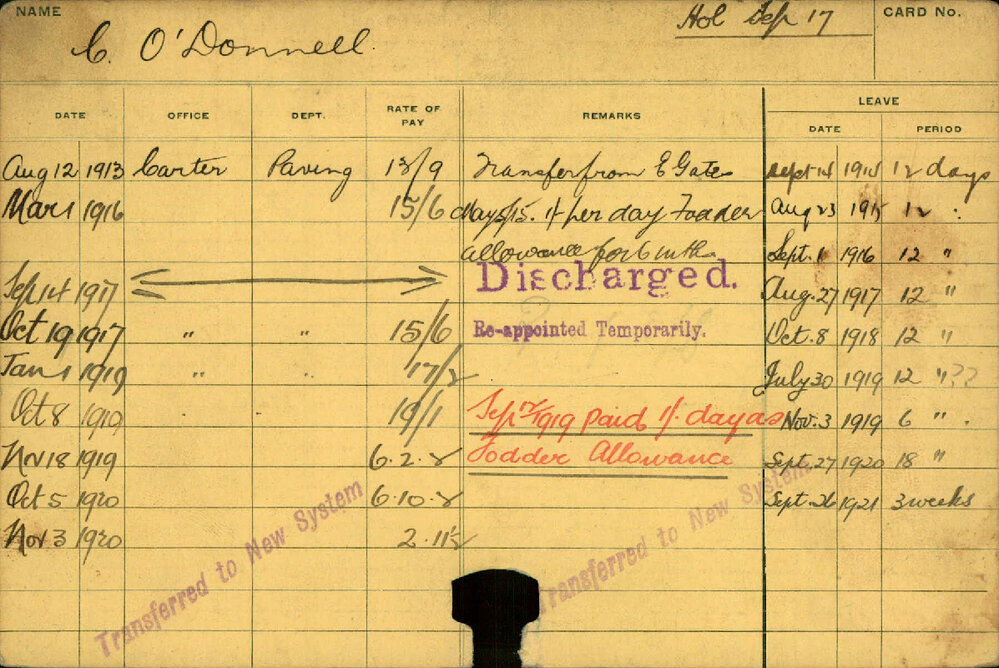 NAME
C. O'Donnell.
Hol Sep 17
CARD No.
DATE OFFICE DEPT. RATE OF PAY REMARKS LEAVE
DATE PERIOD
Aug 12 1913 Carter Paving 13/9 Transfer from E Gates Sept 14 1914 12 days
Mar 1 1916 15/6 May 5/15. 1/- per day Fodder Aug 23 1915 12 "
allowance for 6 mths Sept. 1 1916 12 "
Sep 14 1917 Discharged. Aug. 27 1917 12 "
Oct 19 1917 " " 15/6 Re-appointed Temporarily. Oct. 8 1918 12 "
Jan 1 1919 " " 17/2 July 30 1919 12 " ??
Oct 8 1919 " " 19/1 Sep 17/1919 paid 1/- day as Nov. 3 1919 6 "
Nov 18 1919 6.2.8 Fodder Allowance Sept. 27 1920 18 "
Oct 5 1920 6.10.8 Sept. 26 1921 3 weeks
Nov 3 1920 2.11½
Transferred to New System
Transferred to New System